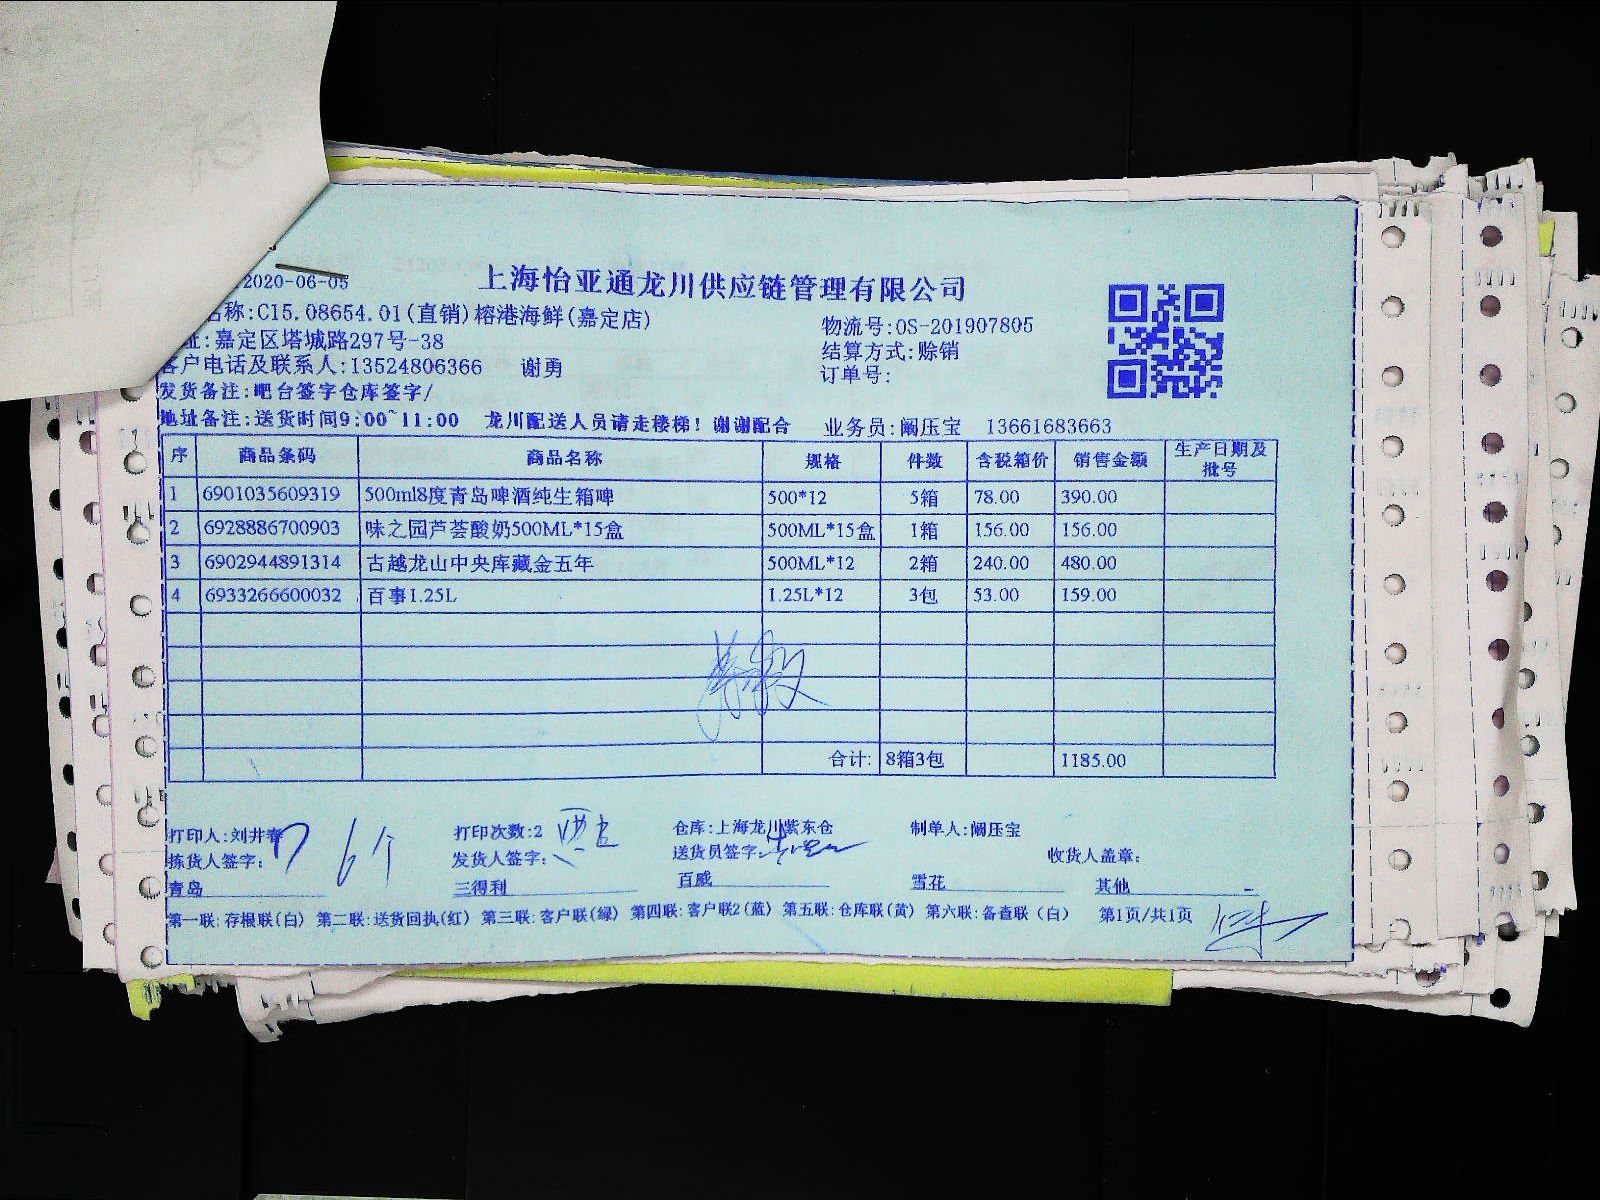 2020-06-05
上海怡亚通龙川供应链管理有限公司
称:C15.08654.01(直销)榕港海鲜(嘉定店)
物流号:OS-201907805
址:嘉定区塔城路297号-38
结算方式:赊销
客户电话及联系人:13524806366 谢勇
订单号:
发货备注:吧台签字仓库签字/
地址备注:送货时间9:00~11:00 龙川配送人员请走楼梯！谢谢配合 业务员:阚压宝 13661683663
序 商品条码 商品名称 规格 件数 含税箱价 销售金额 生产日期及批号
1 6901035609319 500ml8度青岛啤酒纯生箱啤 500*12 5箱 78.00 390.00
2 6928886700903 味之园芦荟酸奶500ML*15盒 500ML*15盒 1箱 156.00 156.00
3 6902944891314 古越龙山中央库藏金五年 500ML*12 2箱 240.00 480.00
4 6933266600032 百事1.25L 1.25L*12 3包 53.00 159.00
合计: 8箱3包 1185.00
打印人:刘井春 打印次数:2 仓库:上海龙川紫东仓 制单人:阚压宝
拣货人签字: 6个 发货人签字: 送货员签字: 收货人盖章:
青岛 三得利 百威 雪花 其他
第一联:存根联(白) 第二联:送货回执(红) 第三联:客户联(绿) 第四联:客户联2(蓝) 第五联:仓库联(黄) 第六联:备查联(白) 第1页/共1页